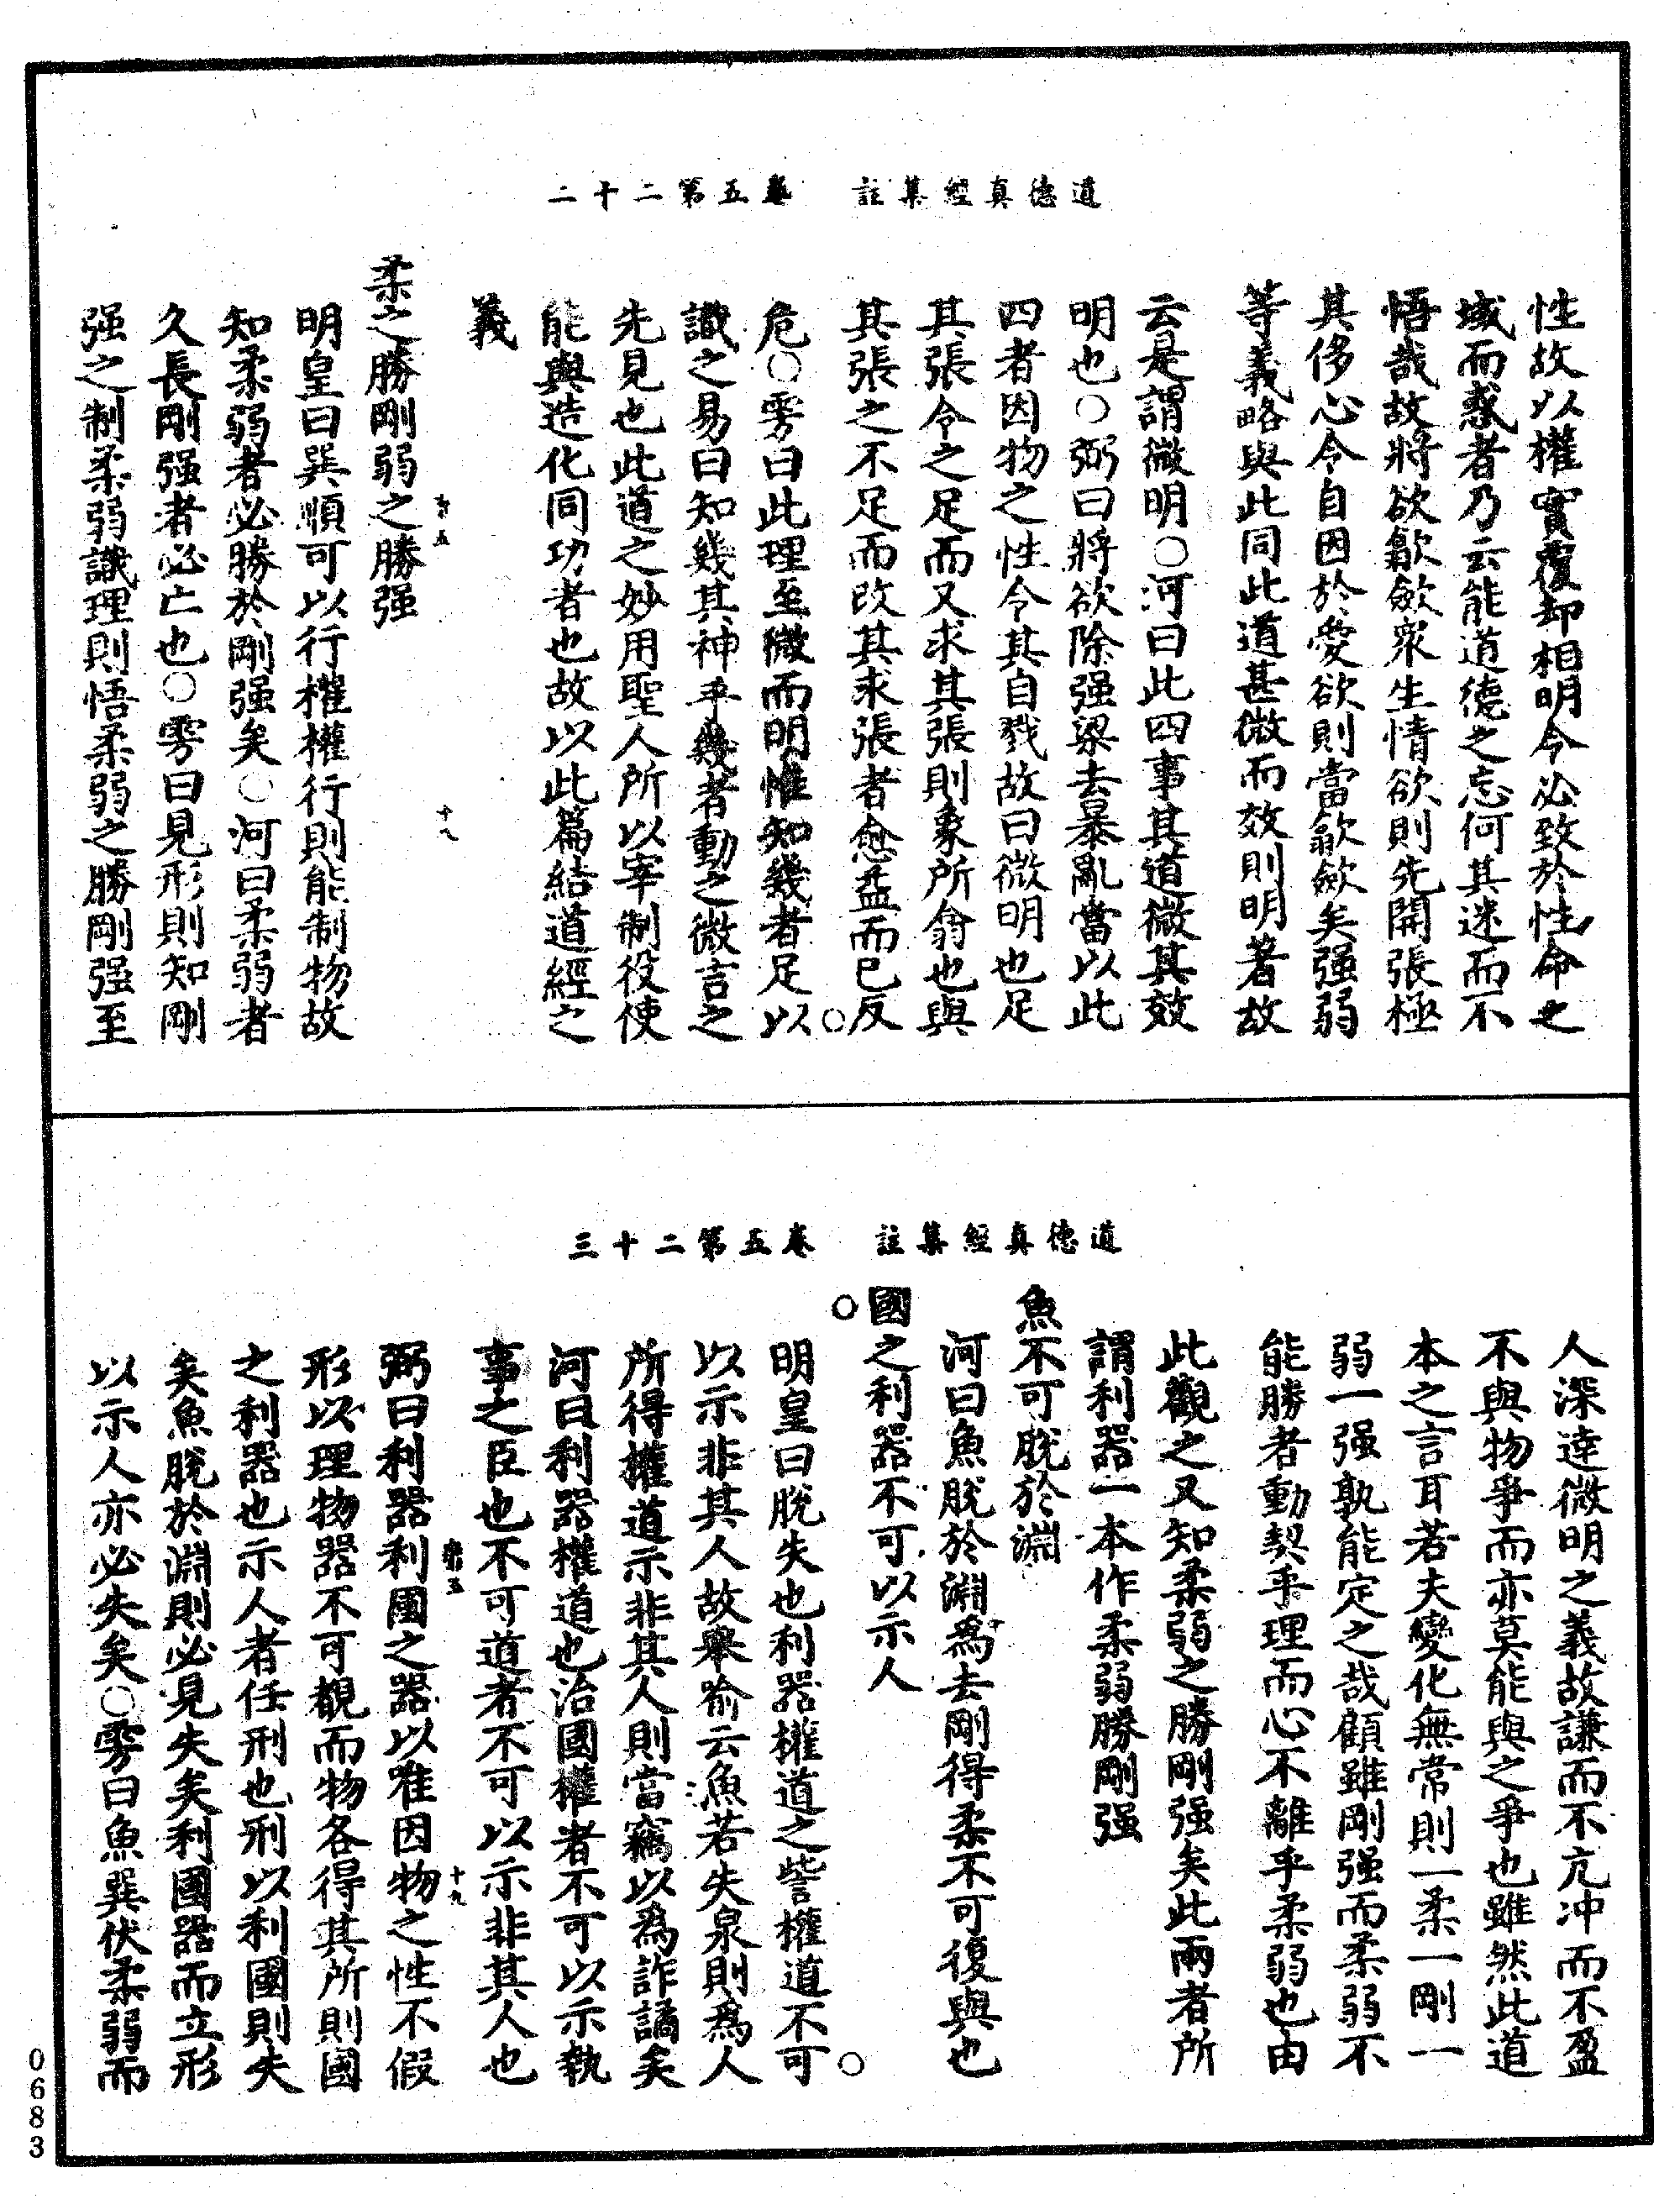 道德真經集註　卷五第二十二
性故以權實覆却相明今必致於性命之
域而惑者乃云能道德之忘何其迷而不
悟哉故將欲歙斂衆生情欲則先開張極
其侈心令自困於愛欲則當歙斂矣强弱
等義略與此同此道甚微而效則明著故
云是謂微明○河曰此四事其道微其效
明也○弼曰將欲除强梁去暴亂當以此
四者因物之性令其自戮故曰微明也足
其張令之足而又求其張則象所翕也與
其張之不足而改其求張者愈益而已反
危○雱曰此理至微而明惟知幾者足以
識之易曰知幾其神乎幾者動之微言之
先見也此道之妙用聖人所以宰制役使
能與造化同功者也故以此篇結道經之
義
十八
柔之勝剛弱之勝强
明皇曰巽順可以行權權行則能制物故
知柔弱者必勝於剛强矣○河曰柔弱者
久長剛强者必亡也○雱曰見形則知剛
强之制柔弱識理則悟柔弱之勝剛强至
道德真經集註　卷五第二十三
人深達微明之義故謙而不亢冲而不盈
不與物爭而亦莫能與之爭也雖然此道
本之言耳若夫變化無常則一柔一剛一
弱一强孰能定之哉顧雖剛强而柔弱不
能勝者動契乎理而心不離乎柔弱也由
此觀之又知柔弱之勝剛强矣此兩者所
謂利器一本作柔弱勝剛强
魚不可脫於淵
河曰魚脫於淵爲去剛得柔不可復與也
國之利器不可以示人
○
明皇曰脫失也利器權道之訾權道不可○
以示非其人故舉喻云魚若失泉則爲人
所得權道示非其人則當竊以爲詐譎矣
河曰利器權道也治國權者不可以示執
事之臣也不可道者不可以示非其人也
十九
弼曰利器利國之器以唯因物之性不假
形以理物器不可覩而物各得其所則國
之利器也示人者任刑也刑以利國則失
矣魚脫於淵則必見失矣利國器而立形
以示人亦必失矣○雱曰魚巽伏柔弱而
0683